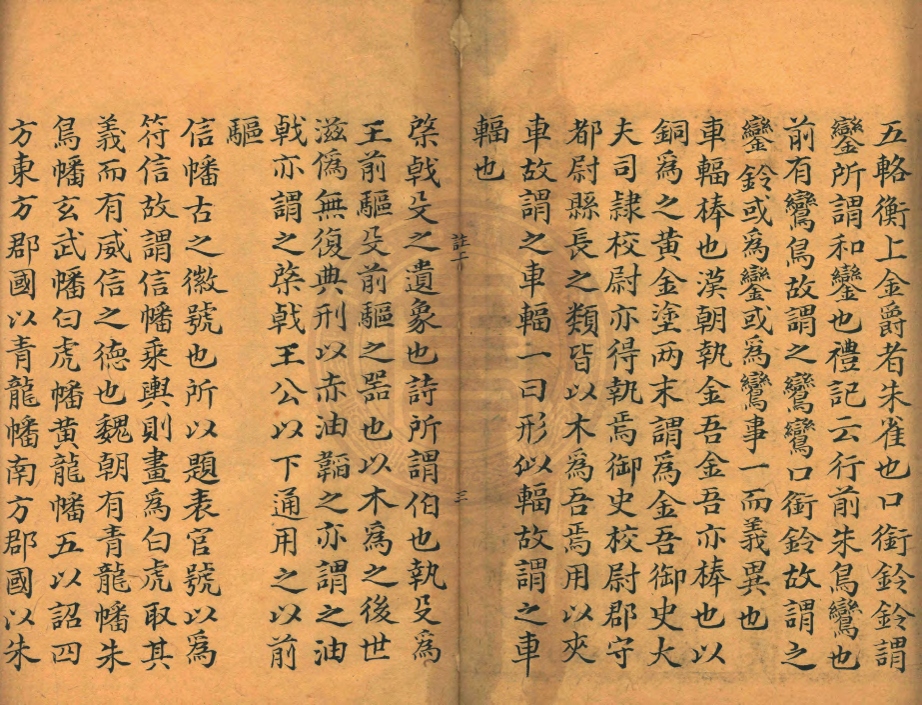 五輅衡上金爵者朱雀也口銜鈴鈴謂
鑾所謂和鑾也禮記云行前朱鳥鸞也
前有鸞鳥故謂之鸞鸞口銜鈴故謂之
鑾鈴或為鑾或為鸞事一而義異也
車輻棒也漢朝執金吾金吾亦棒也以
銅為之黃金塗兩末謂為金吾御史大
夫司隸校尉亦得執焉御史校尉郡守
都尉縣長之類皆以木為吾焉用以夾
車故謂之車輻一曰形似輻故謂之車
輻也
註上
三
棨戟殳之遺象也詩所謂伯也執殳為
王前驅殳前驅之器也以木為之後世
滋偽無復典刑以赤油韜之亦謂之油
戟亦謂之棨戟王公以下通用之以前
驅
信幡古之徽號也所以題表官號以為
符信故謂信幡乘輿則畫為白虎取其
義而有威信之德也魏朝有青龍幡朱
鳥幡玄武幡白虎幡黃龍幡五以詔四
方東方郡國以青龍幡南方郡國以朱